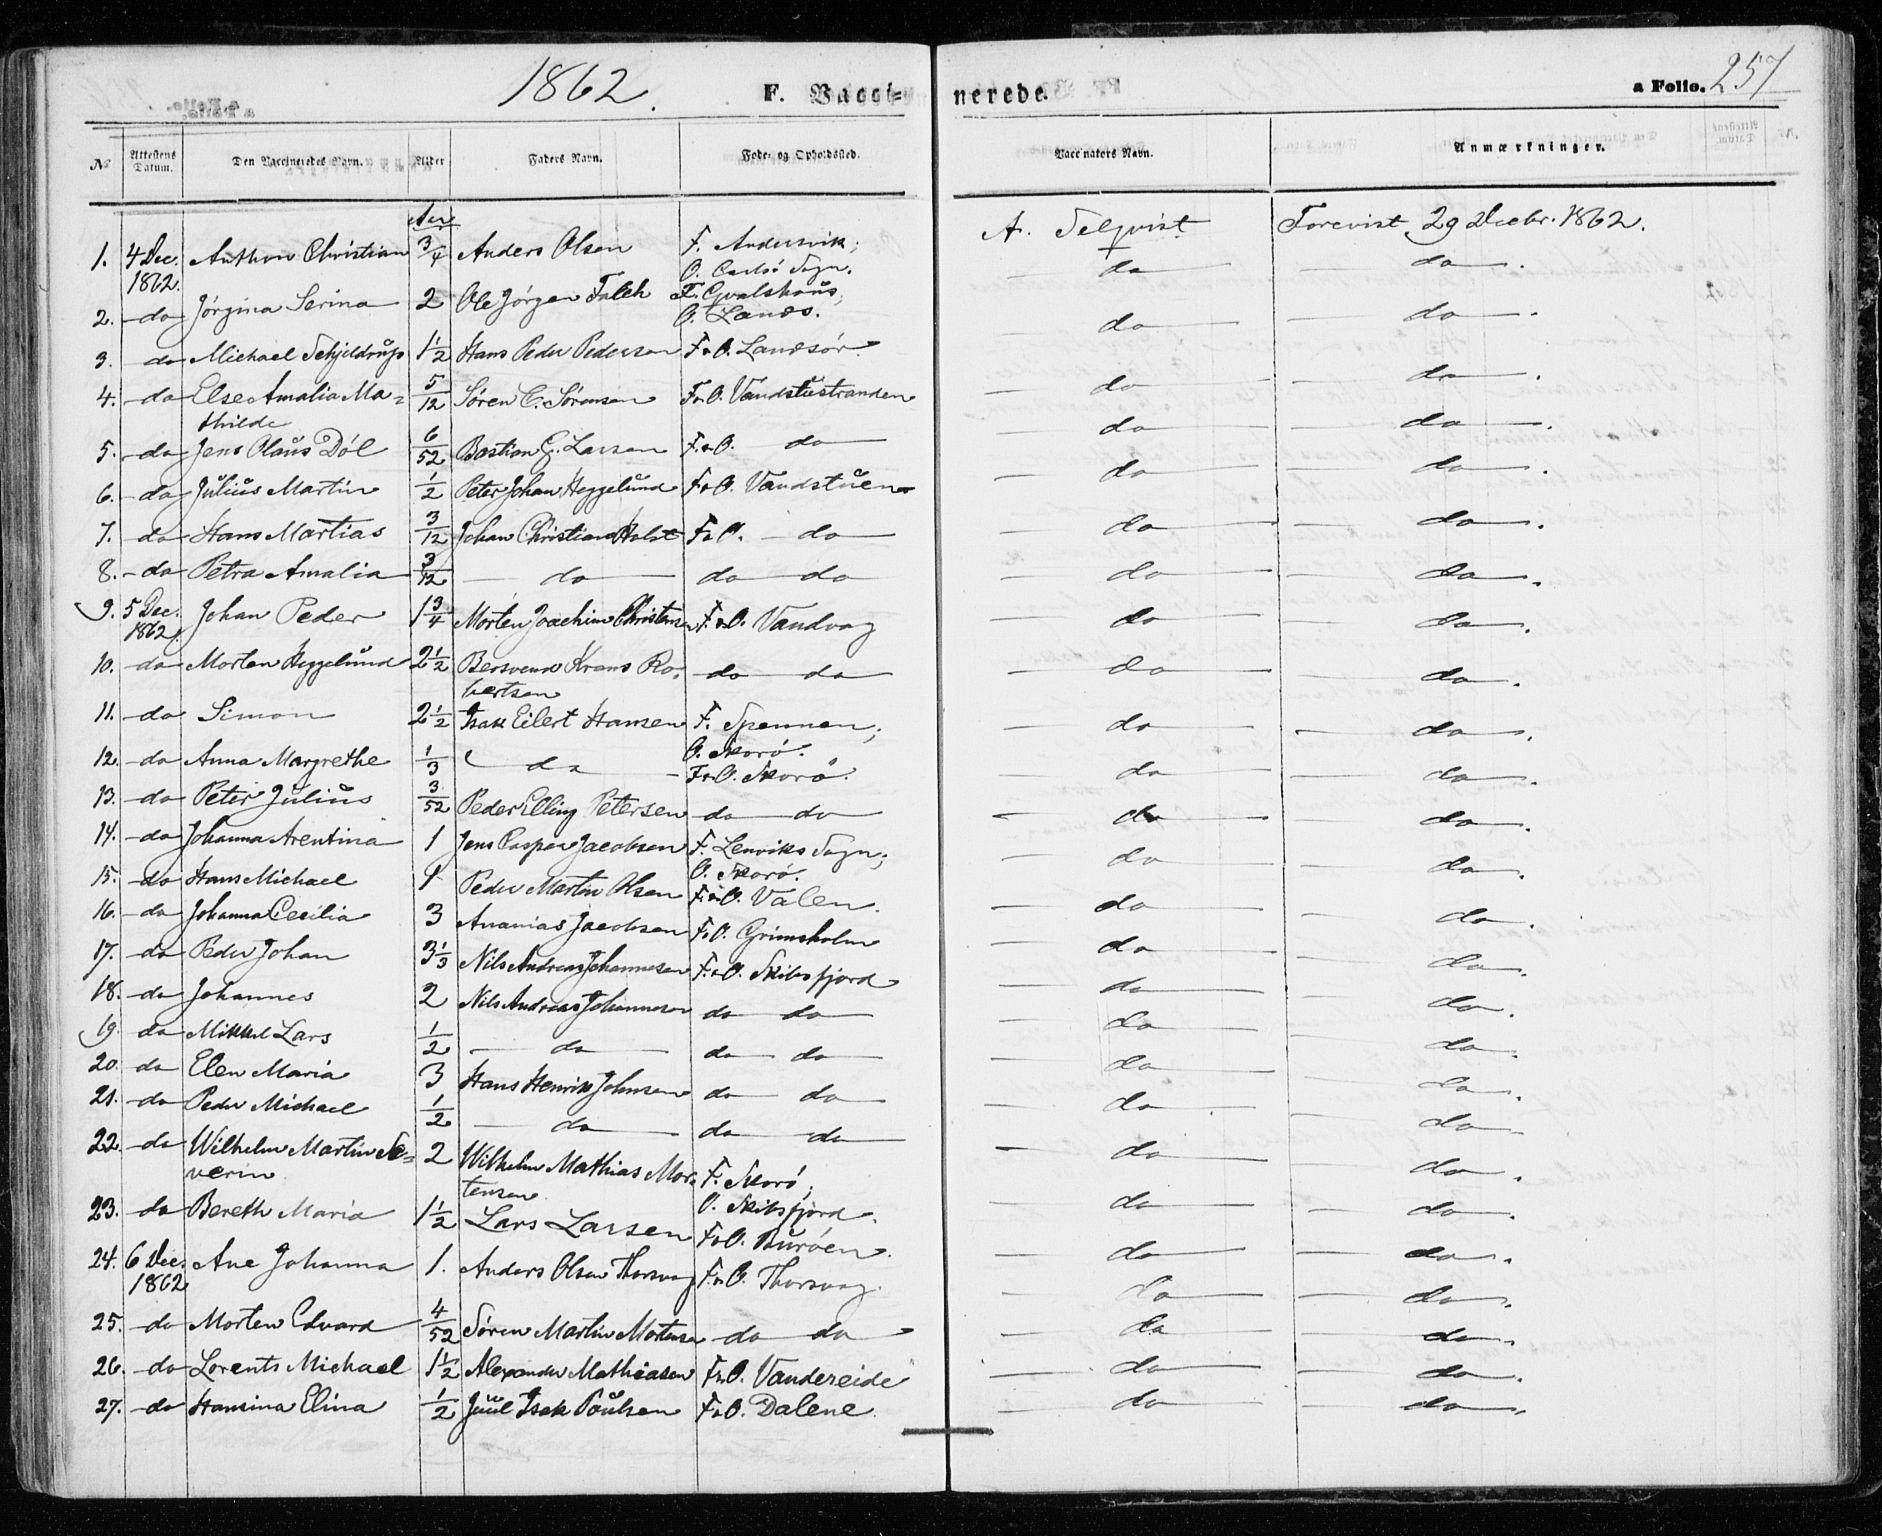 1862.
F. Vacci=
nerede.
a Folio. 257
No
Attestens Datum.
Den Vaccineredes Navn.
Alder
Faders Navn.
Føde- og Opholdssted.
Vaccinators Navn.
Anmærkninger.
Aar
1. 4 Dec. 1862. Anthon Christian 3/4 Anders Olsen F. Andersvik; O. Carlsö Sogn. A. Selqvist Forevist 29 Decbr. 1862.
2. do Jörgina Serina 2 Ole Jörgen Falch F. Gvalshaus; O. Lanes. do do.
3. do Michael Schjeldrup 1 1/2 Hans Peder Pedersen F. & O. Lanesör. do do.
4. do Else Amalia Ma= 5/12 Sören C. Sörensen F. & O. Vandstuestranden do do.
thilde
5. do Jens Olaus Döl 6/52 Bastian G. Larsen F. & O. do do do.
6. do Julius Martin 1/2 Peter Johan Heggelund F & O. Vandstuen do do.
7. do Hans Martias 3/12 Johan Christian Holst F & O. do do do.
8. do Petra Amalia 3/12 do do do do do.
9. 5 Dec. 1862. Johan Peder 1 3/4 Morten Joachim Christensen F. & O. Vandvag do do.
10. do Morten Heggelund 2 1/2 Bersvend Krans Ro= do do do do.
bertsen
11. do Simon 2 1/2 Isak Eilert Hansen F. Spennen; do do.
O. Skorö.
12. do Anna Margrethe 1/3 do F & O. Skorö. do do.
13. do Peter Julius 3/52 Peder Elling Petersen do do do do.
14. do Johanna Arentina 1 Jens Casper Jacobsen F. Lenviks Sogn; do do.
O. Skorö.
15. do Hans Michael 1 Peder Martin Olsen F. & O. Valen. do do.
16. do Johanna Cecilia 3 Ananias Jacobsen F & O. Grimsholm do do.
17. do Peder Johan 3 1/3 Nils Andreas Johannesen F. & O. Skibsfjord do do.
18. do Johannes 2 Nils Andreas Johannesen do do do do.
19. do Mikkel Lars 1/2 do do do do do.
20. do Elen Maria 3 Hans Henrik Johnsen do do do do.
21. do Peder Michael 1/2 do do do do do
22. do Wilhelm Martin Se= 2 Wilhelm Mathias Mor= F. Skorö; do do.
verin tensen O. Skibsfjord.
23. do Bereth Maria 1 1/2 Lars Larsen F & O. Buröen. do do.
24. 6 Dec. 1862 Ane Johanna 1. Anders Olsen Thorsvag F & O. Thorsvag. do do.
25. do Morten Edvard 4/52 Sören Martin Mortensen do do do do.
26. do Lorents Michael 1 1/2 Alexander Mathiasen F & O. Vandereide do do.
27. do Hansina Elina 1/2 Juul Isak Poulsen F & O. Dalene. do do.